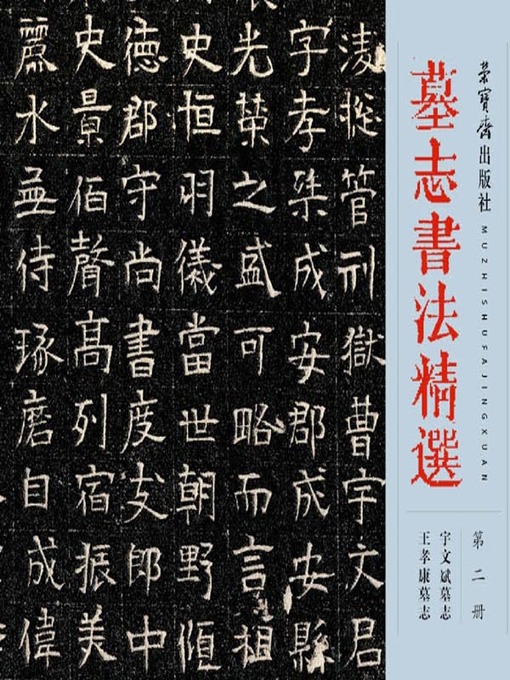 荣宝斋出版社
墓志書法精選
MUZHISHUFAJINGXUAN
第二册
宇文斌墓志
王孝康墓志
淩摠管刑獄曹宇文君
字孝桀成安郡成安縣
光榮之盛可略而言祖
史恒羽儀當世朝野傾
德郡守尚書度支郎中
史景佰聲高列宿振美
麗水孟侍琢磨自成偉